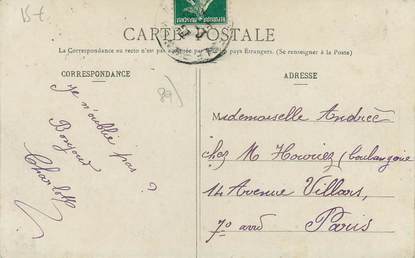 15 €
CARTE POSTALE
La Correspondance au recto n'est pas acceptée par pays Étrangers. (Se renseigner à la Poste)
CORRESPONDANCE
ADRESSE
Je n'oublie pas ?
Bonjour
Charlotte
Mademoiselle Andrée
chez M Houriez (boulangerie
14 Avenue Villars,
7e arrd Paris